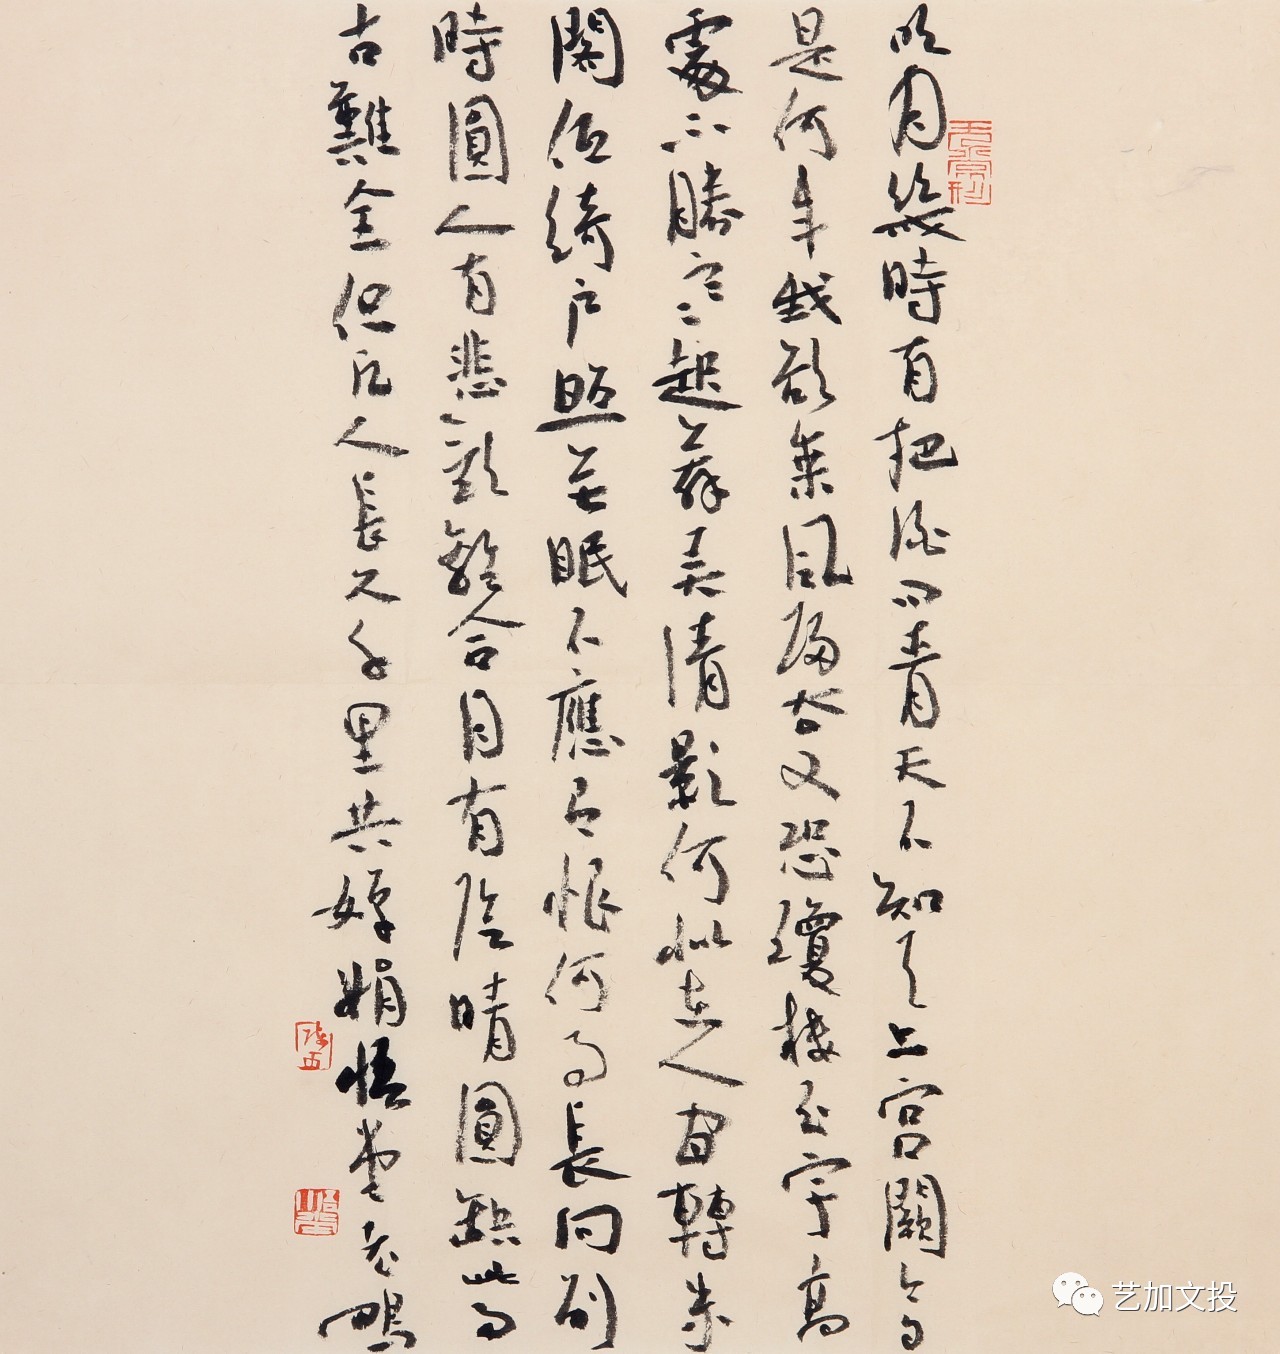 明月幾時有把酒問青天不知天上宮闕今夕
是何年我欲乘風歸去又恐瓊樓玉宇高
處不勝寒起舞弄清影何似在人間轉朱
閣低綺户照無眠不應有恨何事長向別
時圓人有悲歡離合月有陰晴圓缺此事
古難全但願人長久千里共嬋娟悟堂老
艺加文投